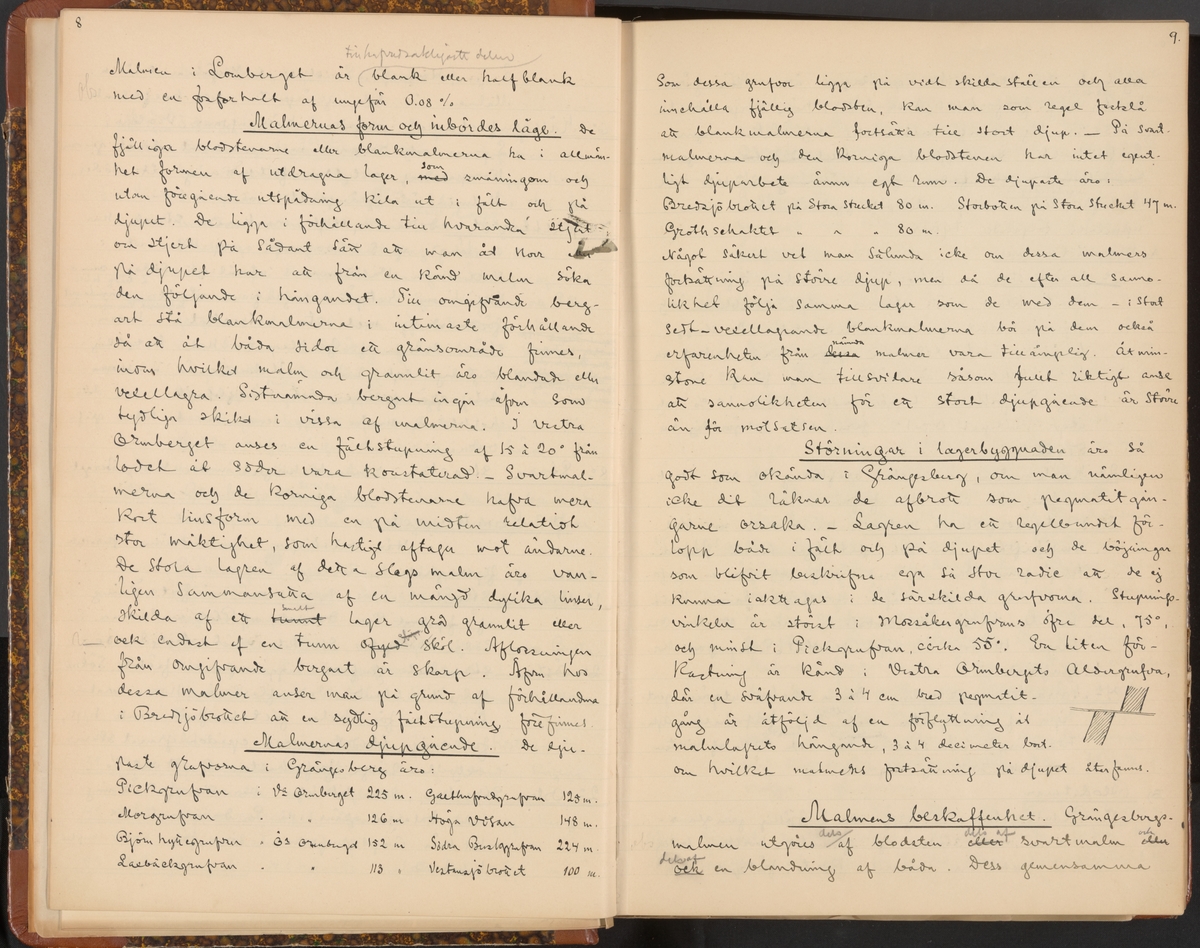 8
Malmen i Lomberget är blank eller halfblank
med en fosforhalt af ungefär 0.08 %
Malmernas form och inbördes läge. De
fjälliga blodstenarne eller blankmalmerna ha i allmän-
het formen af utdragna lager, med som småningom och
utan föregående utspädning kila ut i fält och på
djupet. De ligga i förhållande till hvarandra stjert
om stjert på sådant sätt att man åt norr
på djupet har att från en känd malm söka
den följande i hängandet. Till omgifvande berg-
art stå blankmalmerna i intimaste förhållande
så att åt båda sidor ett gränsområde finnes,
inom hvilket malm och granulit äro blandade eller
vexellagra. Sistnämnda bergart ingår äfven som
tydliga skikt i vissa af malmerna. I vestra
Ormberget anses en fältstupning af 15 à 20° från
lodet åt söder vara konstaterad. – Svartmal-
merna och de korniga blodstenarne hafva mera
kort linsform med en på midten relativt
stor mäktighet, som hastigt aftager mot ändarne.
De stora lagren af detta slags malm äro van-
ligen sammansatta af en mängd dylika linser,
skilda af ett tunnt smalt lager grå granulit eller
ock endast af en tunn sköl. Aflossningen
från omgifvande bergart är skarp. Äfven hos
dessa malmer anser man på grund af förhållandena
i Bredsjöbrottet att en sydlig fältstupning förefinnes.
Malmernas djupgående. De dju-
paste grufvorna i Grängesberg äro:
Pickgrufvan i V:a Ormberget 225 m. 123 m.
Morgrufvan " " 126 m Höga Visan 148 m.
Björn Hyttegrufvan " Ös Ormberget 152 m Södra 224 m.
Laebäckgrufvan " " 113 " Vestansjöbrottet 100 m.
9.
Som dessa grufvor ligga på vidt skilda ställen och alla
innehålla fjällig blodsten, kan man som regel fastslå
att blankmalmerna fortsätta till stort djup. – På svart-
malmerna och den korniga blodstenen har intet egent-
ligt djuparbete ännu egt rum. De djupaste äro:
Bredsjöbrottet på Stora Stucket 80 m. Storbotten på Stora Stucket 47 m.
Grothschaktet " " " 80 m.
Något säkert vet man sålunda icke om dessa malmers
fortsättning på större djup, men då de efter all sanno-
likhet följa samma lagar som de med dem – i stort
sedt – vexellagrande blankmalmerna bör på dem också
erfarenheten från dessa nämnda malmer vara tillämplig. Åtmin-
stone kan man tillsvidare såsom fullt riktigt anse
att sannolikheten för ett stort djupgående är större
än för motsatsen.
Störningar i lagerbyggnaden äro så
godt som okända i Grängesberg, om man nämligen
icke dit räknar de afbrott som pegmatitgån-
garne orsaka. – Lagren ha ett regelbundet för-
lopp både i fält och på djupet och de böjningar
som blifvit beskrifna ega så stor radie att de ej
kunna iakttagas i de särskilda grufvorna. Stupnings-
vinkeln är störst i Mossåkergrufvans öfre del, 75°,
och minst i Pickgrufvan, cirka 55°. En liten för-
kastning är känd i Vestra Ormbergets Aldergrufva,
där en sväfvande 3 à 4 cm bred pegmatit-
gång är åtföljd af en förflyttning åt
malmlagrets hängande, 3 à 4 decimeter bort.
om hvilket malmens fortsättning på djupet återfanns.
Malmens beskaffenhet. Grängesbergs-
malmen utgöres dels af blodsten eller dels af svartmalm eller och
och dels af en blandning af båda. Dess gemensamma